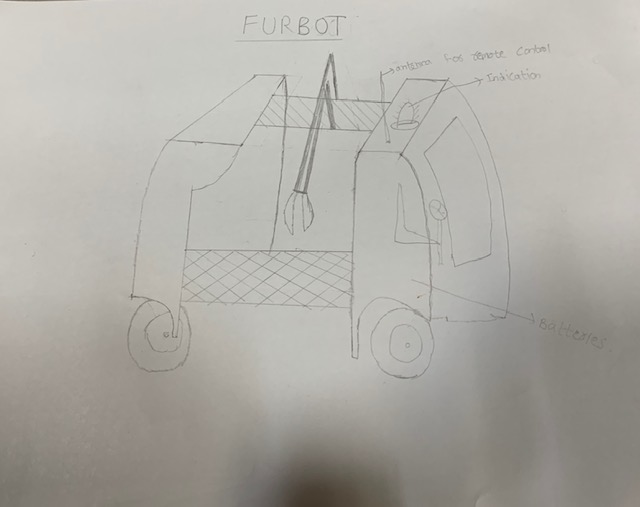 FURBOT
antenna for remote control
Indication
Batteries.